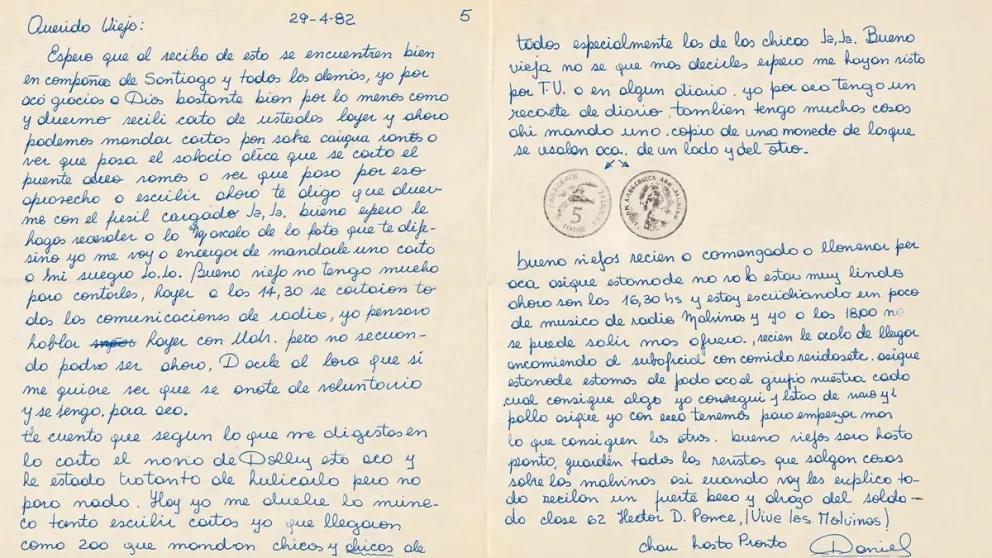 29-4-82
5
Querido Viejo:
Espero que al recibo de esto se encuentren bien
en compañia de Santiago y todos los demas, yo por
acá gracias a Dios bastante bien por lo menos como
y duermo recibi carta de ustedes hayer y ahora
podemos mandar cartas por
ver que pasa el sabado dice que se corto el
puente aereo vamos a ver que pasa por eso
aprovecho a escribir ahora te digo que duer-
mo con el fusil cargado Ja, Ja. bueno espero le
hagas recordar a la de la foto que te dije
sino yo me voy a encargar de mandarle una carta
a mi suegro Ja. Ja. Bueno viejo no tengo mucho
para contarles, hayer a las 14,30 se cortaron to-
das las comunicaciones de radio, yo pensaba
hablar hayer con Uds. pero no se cuan-
do podra ser ahora, Decile al loro que si
me quiere ver que se anote de voluntario
y se venga, para aca.
te cuento que segun lo que me digistes en
la carta el novio de Dolly esta aca y
he estado tratando de hubicarlo pero no
paro nada. Hoy yo me duele la muñe-
ca tanto escribir cartas ya que llegaron
como 200 que mandron chicos y chicas de
todos especialmente las de las chicas Ja, Ja. Bueno
vieja no se que mas decirles espero me hayan visto
por T.V. o en algun diario. yo por aca tengo un
recorte de diario, tambien tengo muchas cosas
ahi mando una copia de una moneda de las que
se usaban aca. de un lado y del otro.
5
bueno viejos recien a comenzado a llover por
aca asique esta noche no va a estar muy lindo
ahora son las 16,30 hs y estoy escuchando un poco
de musica de radio Malvinas y ya a las 18,00 no
se puede salir mas afuera, recien le acaba de llegar
encomienda al suboficial con comida asique
esta noche estamos de aca el grupo nuestro cada
cual consigue algo yo consegui 1 lata de y 1
pollo asique ya con eso tenemos para empezar mas
lo que consiguen los otros. bueno viejos sera hasta
pronto, guarden todas las revistas que salgan cosas
sobre las malvinas asi cuando voy les explico to-
do reciban un fuerte beso y abrazo del solda-
do clase 62 Hector D. Ponce, ¡Viva las Malvinas!
chau hasta Pronto Daniel